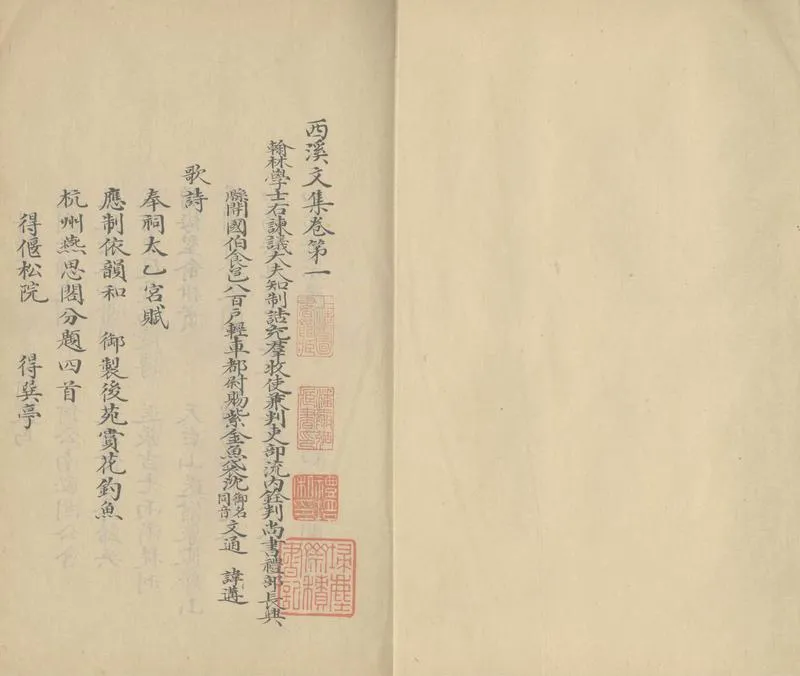 西溪文集卷第一
翰林學士右諫議大夫知制誥充羣牧使兼判吏部流內銓判尚書禮部長興
縣開國伯食邑八百戶輕車都尉賜紫金魚袋沈御名同音文通 諱遘
歌詩
奉祠太乙宮賦
應制依韻和 御製後苑賞花釣魚
杭州燕思閣分題四首
得偃松院 得巽亭